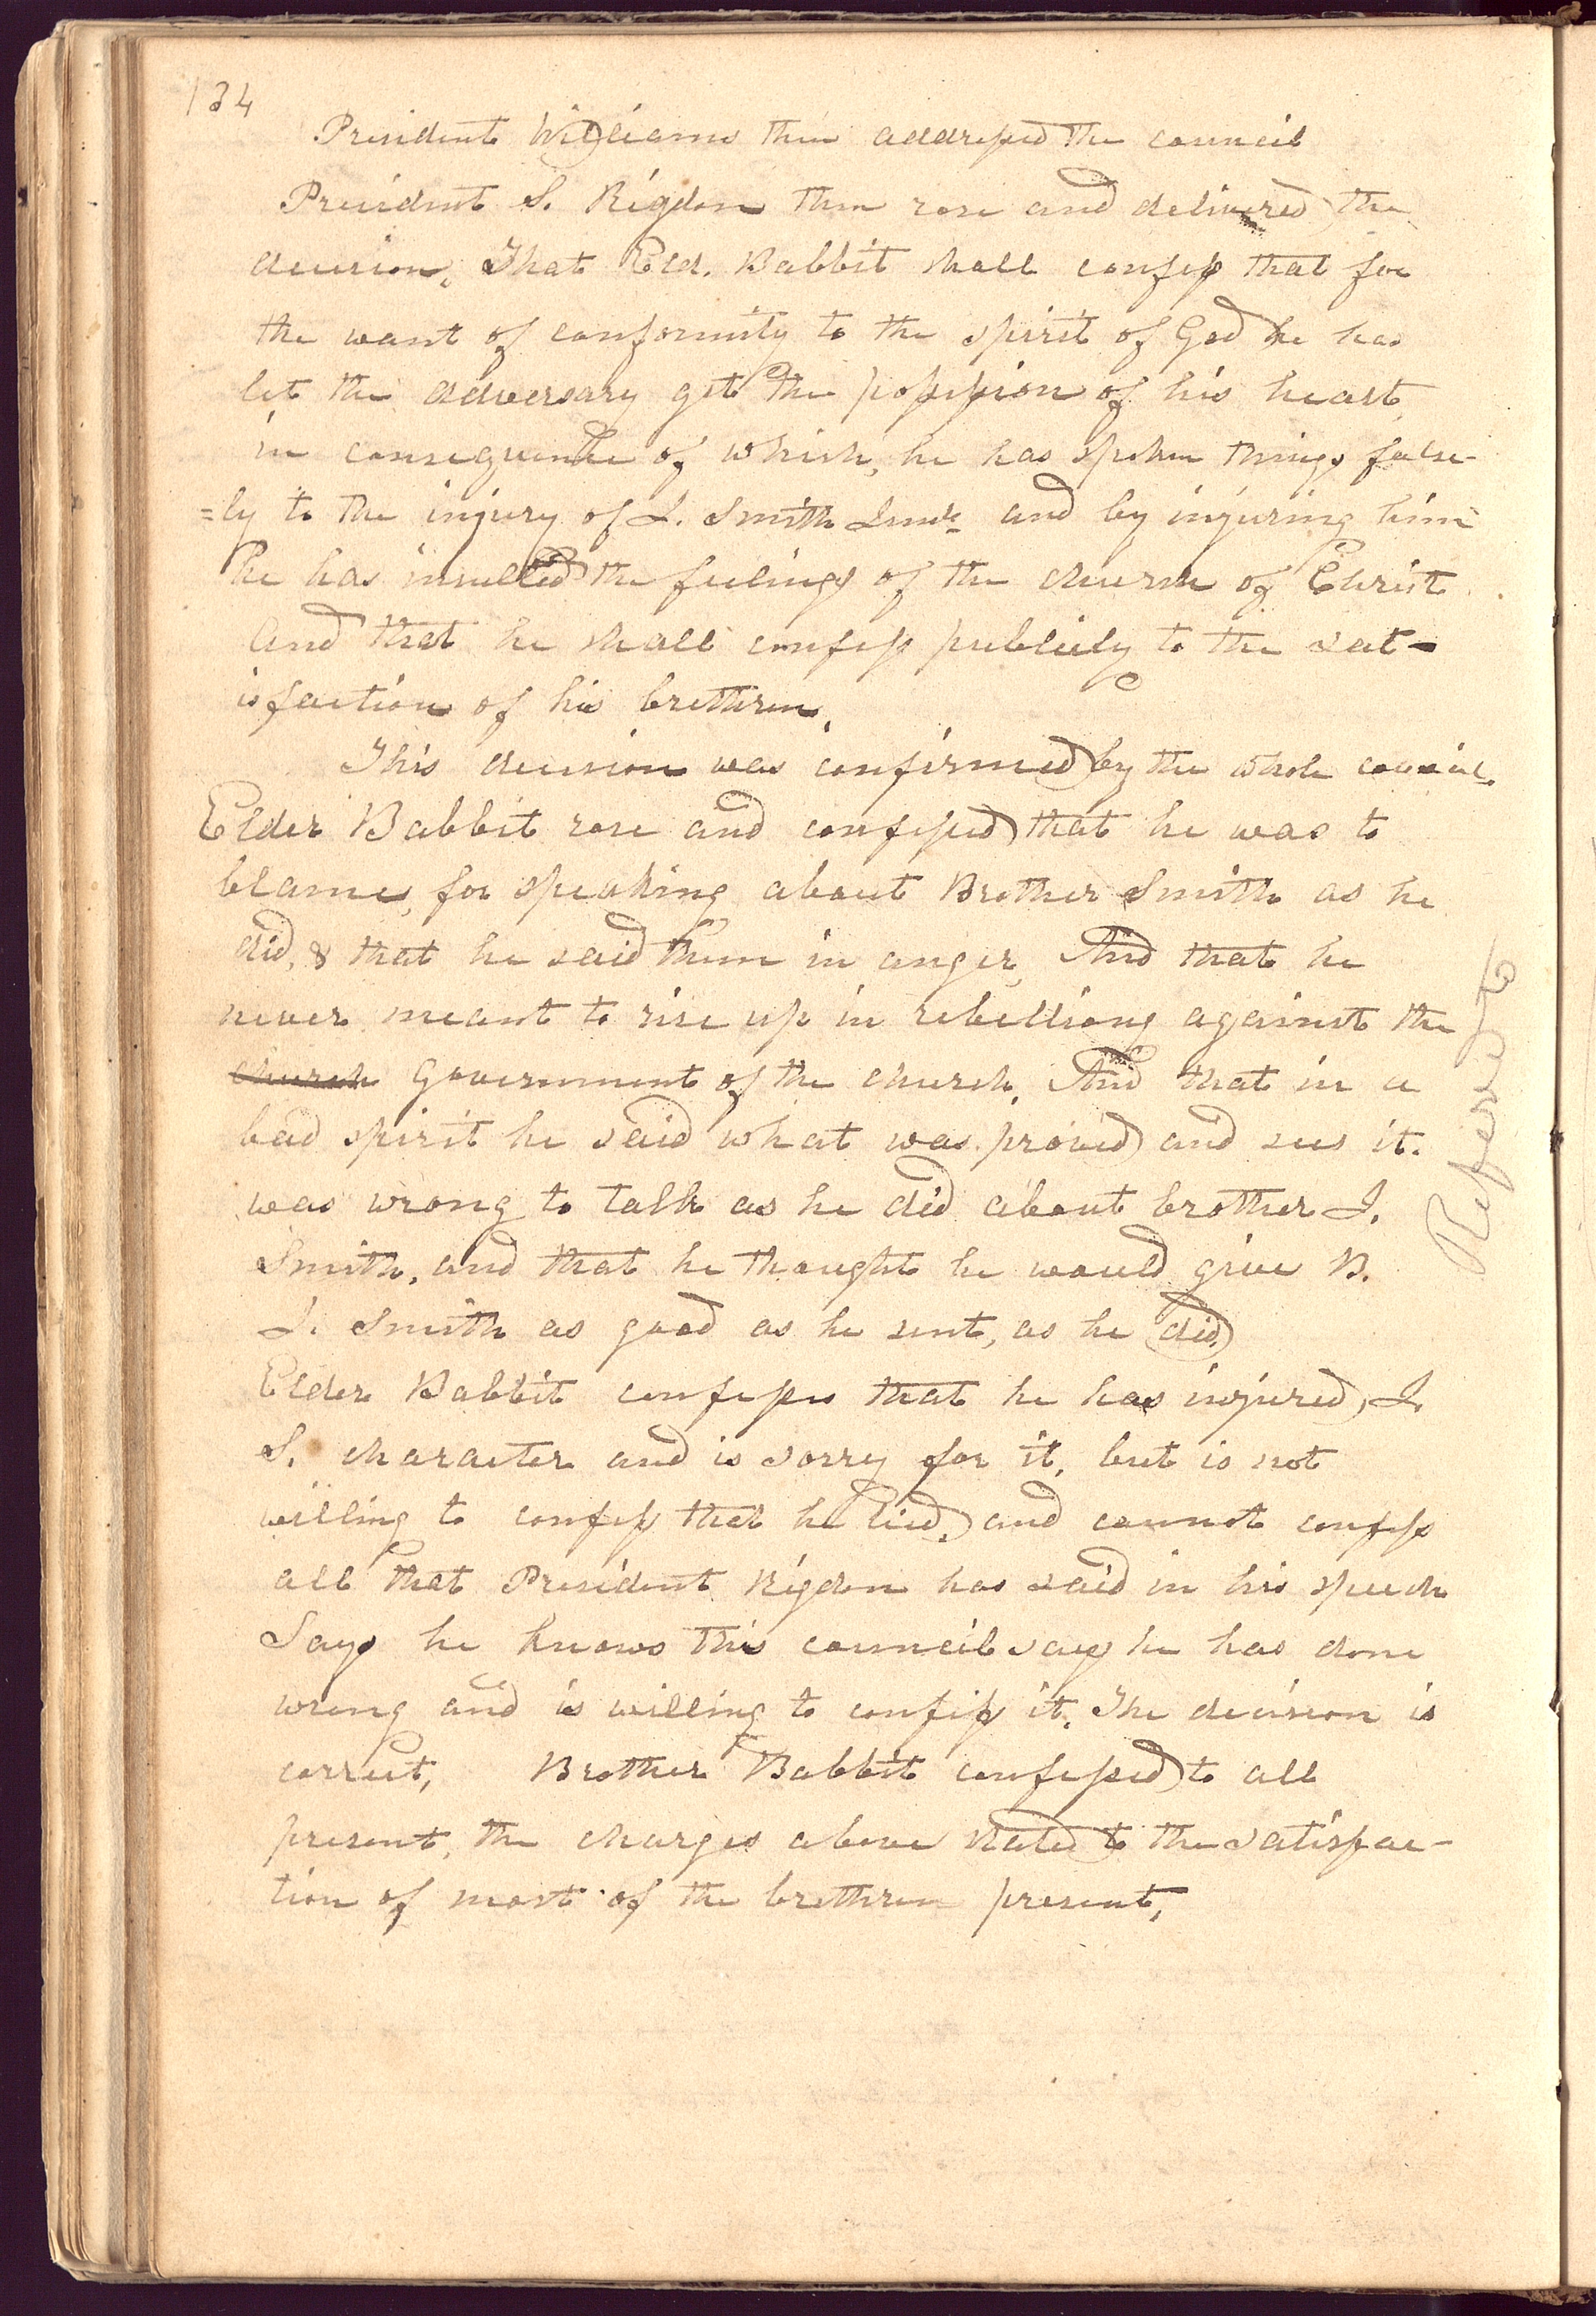 134
President Williams then addressed the council
President S. Rigdon then rose and delivered the
decision, That Eld. Babbit shall confess that for
the want of conformity to the spirit of God he has
let the adversary get the possession of his heart,
in consequence of which, he has spoken things false-
=ly to the injury of J. Smith Junr. and by injuring him
he has insulted the feelings of the church of Christ.
And that he shall confess publicly to the sat-
isfaction of his brethren,
This decision was confirmed by the whole council.
Elder Babbit rose and confessed that he was to
blame, for speaking about Brother Smith as he
did, & that he said them in anger, And that he
never meant to rise up in rebellion against the
church Government of the church, And that in a
bad spirit he said what was proved and sees it.
was wrong to talk as he did about brother J.
Smith, and that he thought he would give B.
J. Smith as good as he sent, as he did
Elder Babbit confesses that he has injured, J.
S. character and is sorry for it, but is not
willing to confess that he lied, and cannot confess
all that President Rigdon has said in his speech
Says he knows this council say he has done
wrong and is willing to confess it, The decision is
correct, Brother Babbit confessed to all
present, the charges above stated to the satisfac-
tion of most of the brethren present,